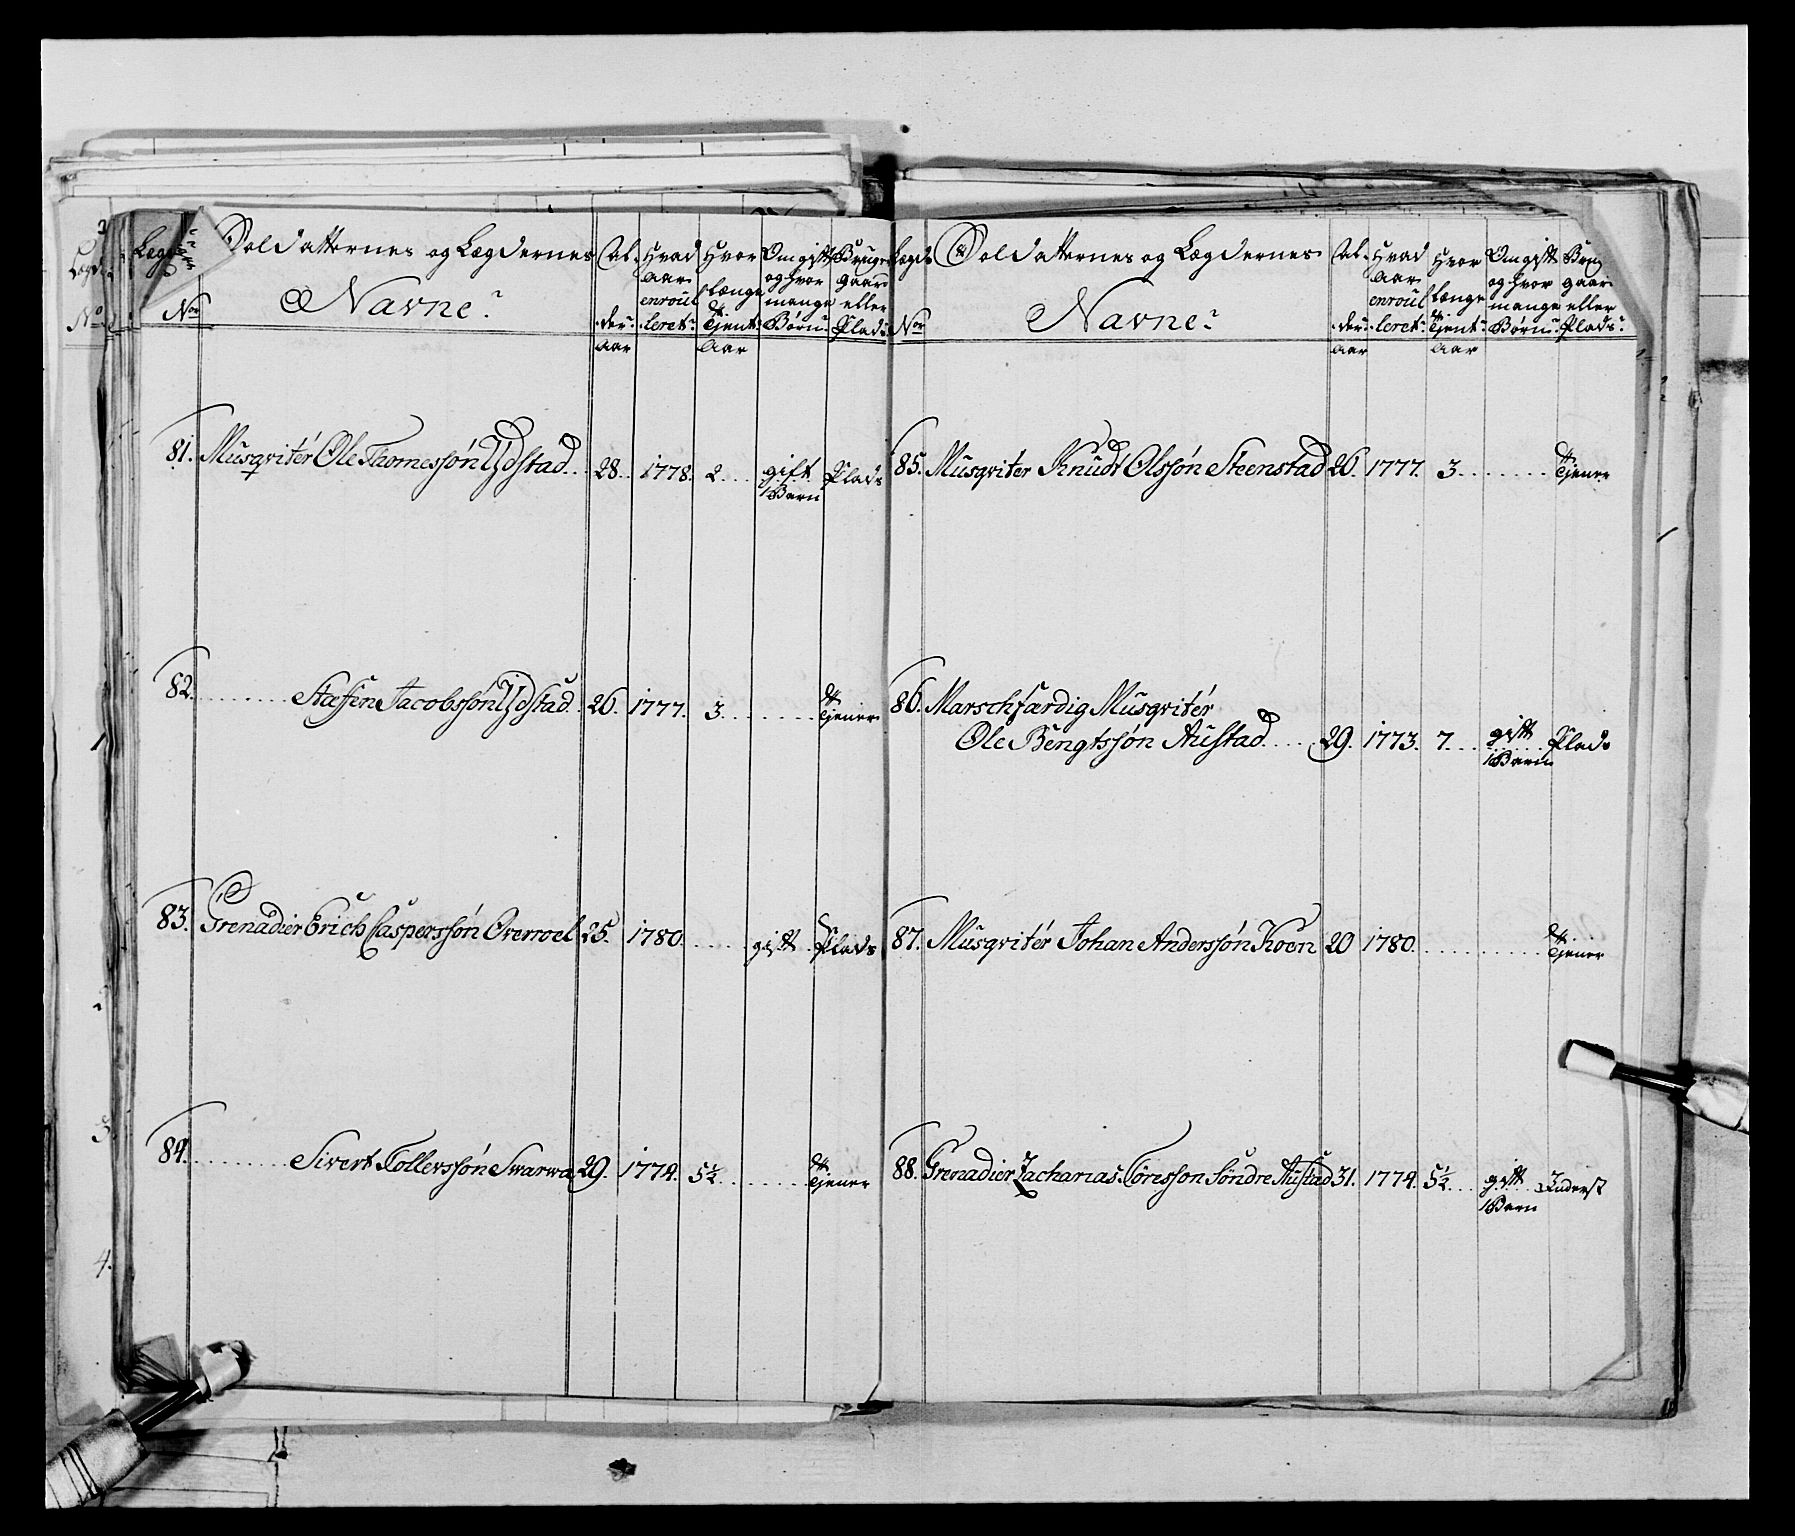 Soldatternes og Lægdernes Navne
Nor
Al-der Aar
Hvad Aar enroulleret
Hvor længe Tjent Aar
Om gift og hvor mange Børn
Bruger Gaard eller Plads
81. Musqvitér Ole Thomessøn Ydstad 28. 1778. 2. gift 1 Barn Plads
82. Staffen Jacobssøn Ydstad 26. 1777. 3. Tjener
83. Grenadier Erich Caspersøn Overvoel 25. 1780. gift Plads
84. Sivert Tollevssøn Swarwa 29. 1774. 5½ Tjener
Lægds Nor
Soldatternes og Lægdernes Navne
Al-der Aar
Hvad Aar enroulleret
Hvor længe Tjent Aar
Om gift og hvor mange Børn
Brug Gaar eller Plads
85. Musqviter Knudt Olssøn Steenstad 26. 1777. 3. Tjener
86. Marschfærdig Musqvitér
Ole Bengtssøn Austad 29. 1773. 7. gift 1 Barn Plads
87. Musqvitér Johan Anderssøn Koen 20 1780. Tjener
88. Grenadier Zacharias Toresson Søndre Austad 31. 1774. 5½ gift 1 Barn Inderst